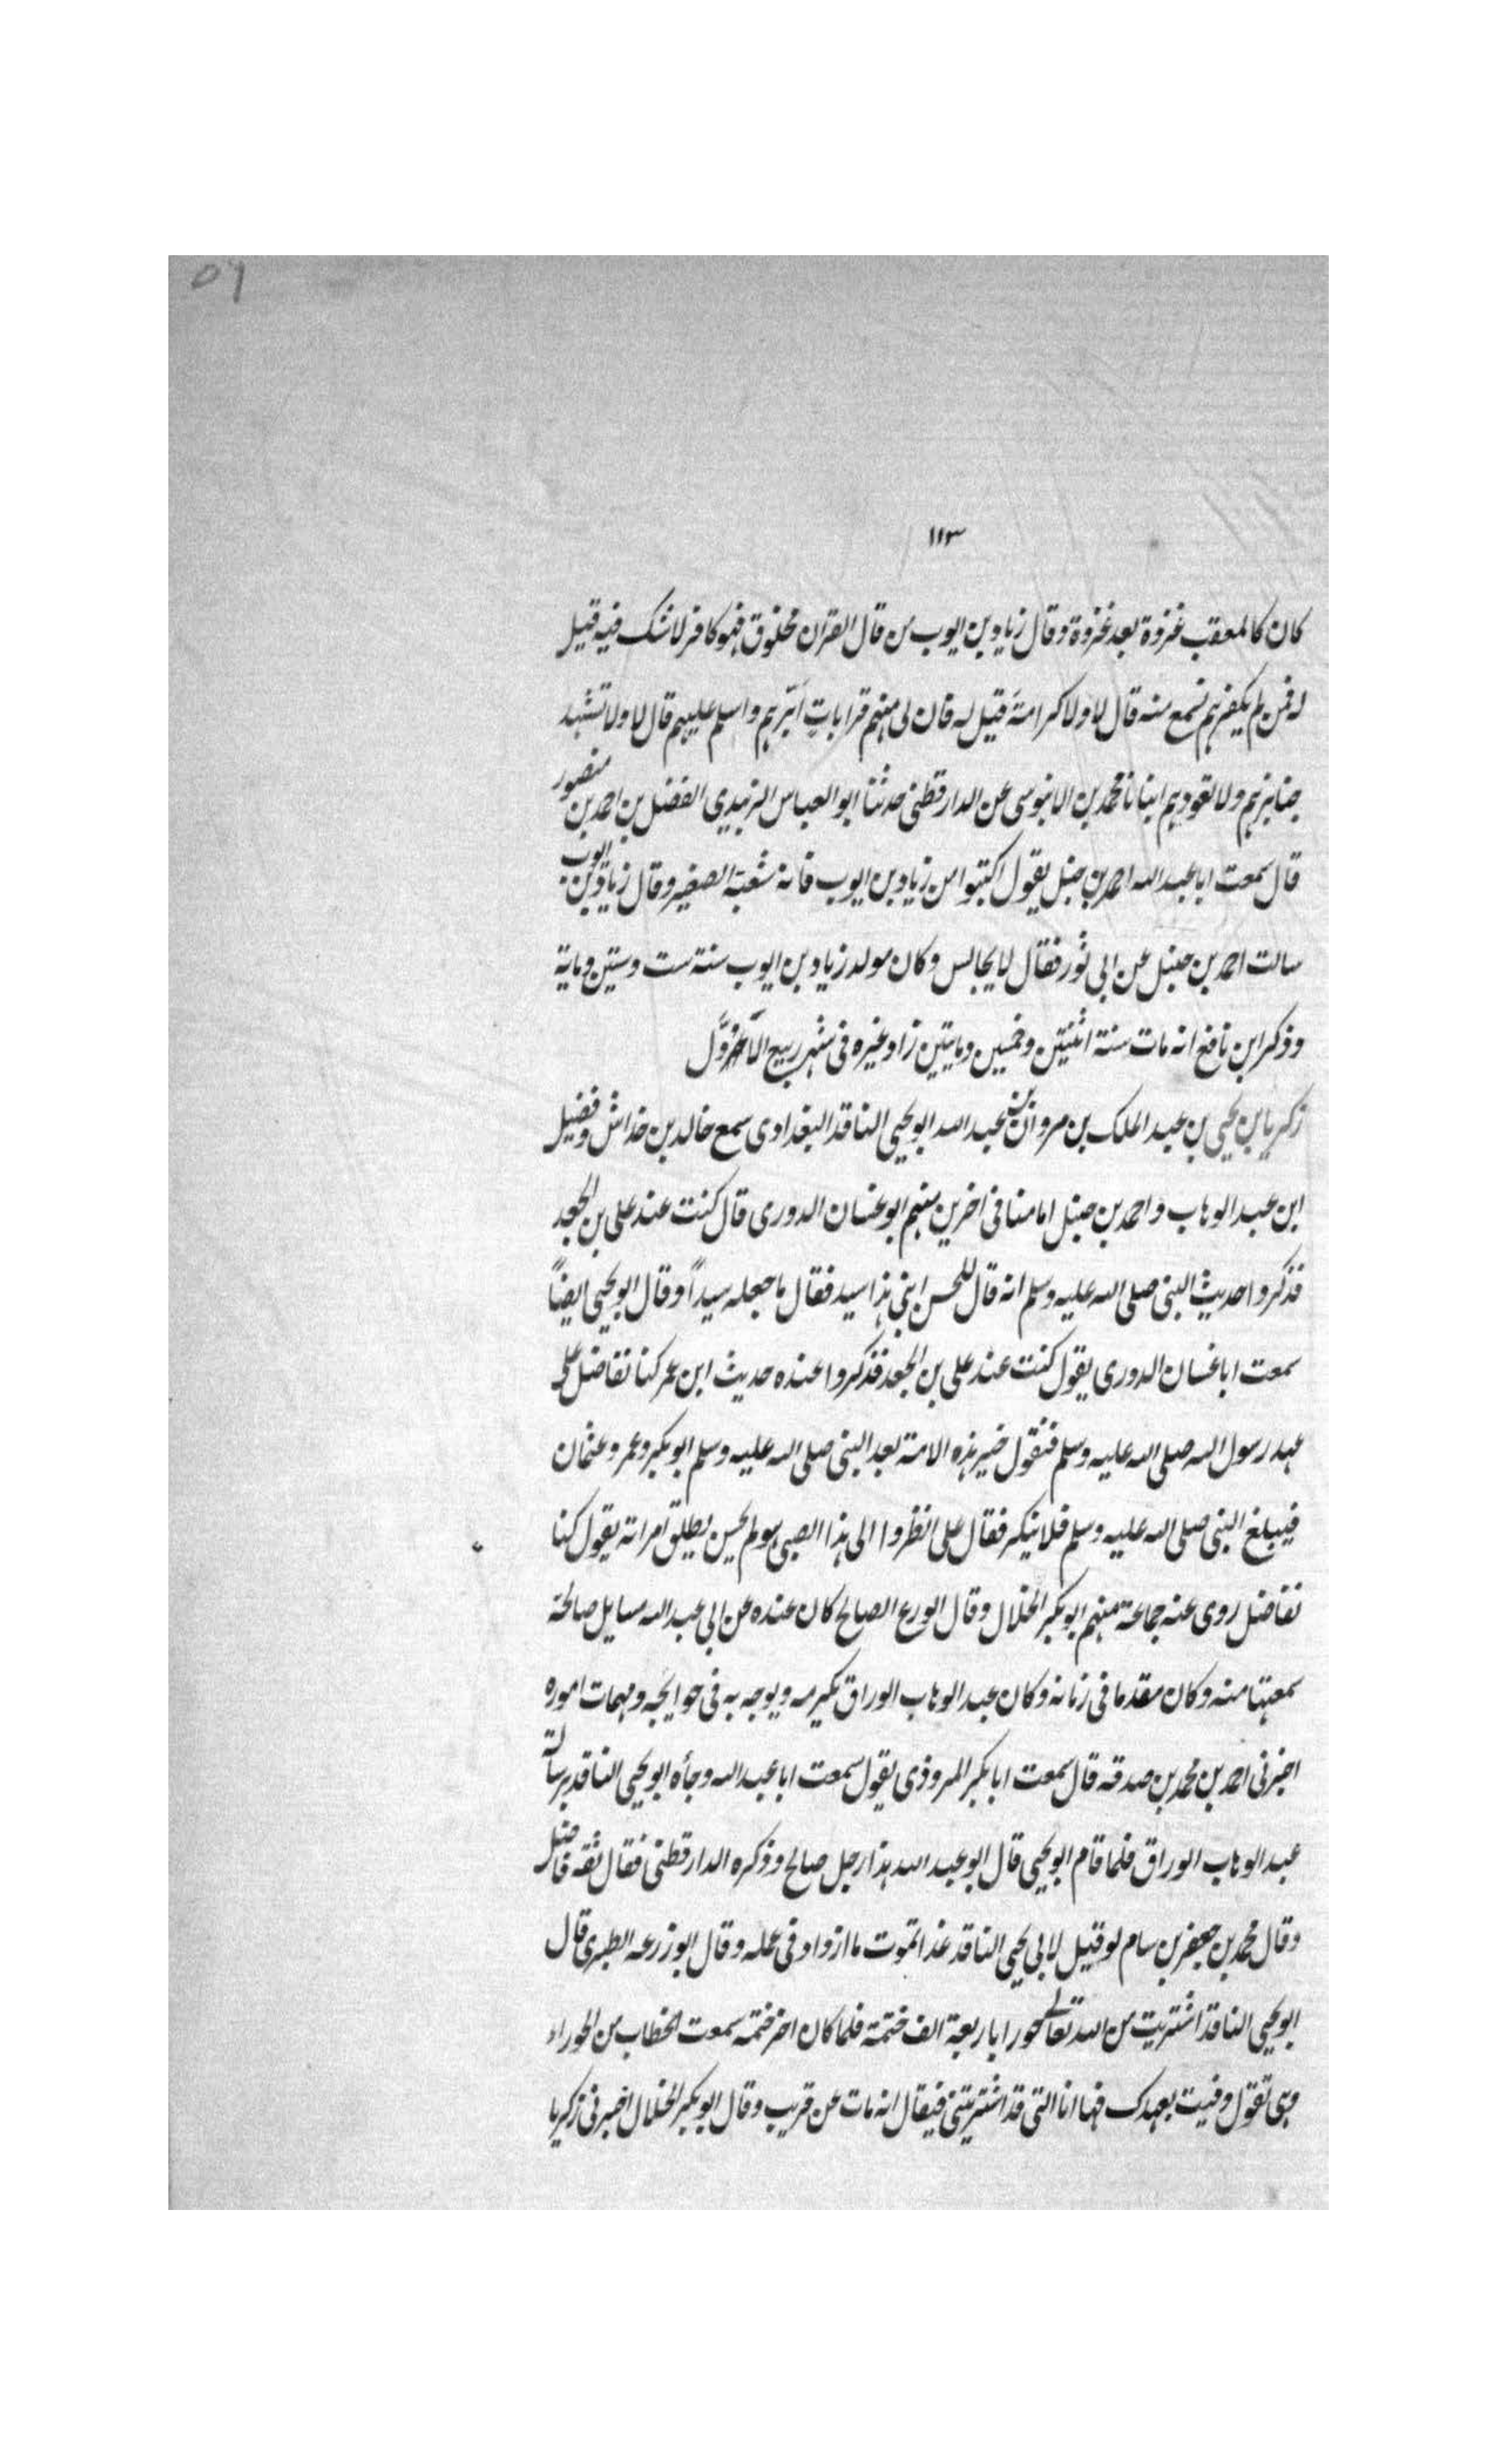 ٥٦
١١٣
كان كالمعقب غزوة بعد غزوة وقال زياد بن ايوب من قال القرآن مخلوق فهو كافر لا شك فيه قيل
له فمن لم يكفرهم نسمع منه قال لا ولا كرامة قيل له فان لى منهم قرابات أبرهم واسلم عليهم قال لا ولا تشهد
جنايزهم ولا تعودهم انبانا محمد بن الابنوسى عن الدارقطنى حدثنا ابو العباس الزبيدى الفضل بن احمد بن منصور
قال سمعت ابا عبد الله احمد بن حنبل يقول اكتبوا من زياد بن ايوب فانه شعبة الصغير وقال زياد بن ايوب
سالت احمد بن حنبل عن ابى ثور فقال لا يجالس وكان مولد زياد بن ايوب سنة ست وستين وماية
وذكر ابن نافع انه مات سنة اثنتين وخمسين ومايتين زاد غيره فى شهر ربيع الاول
زكريا بن يحيى بن عبد الملك بن مروان بن عبد الله ابو يحيى الناقد البغدادى سمع خالد بن خداش وفضيل
ابن عبد الوهاب واحمد بن حنبل امامنا فى اخرين منهم ابو غسان الدورى قال كنت عند على بن الجعد
فذكروا حديث النبى صلى الله عليه وسلم انه قال للحسن ابنى هذا سيد فقال ما جعله سيداً وقال ابو يحيى ايضاً
سمعت ابا غسان الدورى يقول كنت عند على بن الجعد فذكروا عنده حديث ابن عمر كنا نفاضل على
عهد رسول الله صلى الله عليه وسلم فنقول خير هذه الامة بعد النبى صلى الله عليه وسلم ابو بكر وعمر وعثمان
فيبلغ النبى صلى الله عليه وسلم فلا ينكر فقال على انظروا الى هذا الصبى هو لم يحسن يطلق امراته يقول كنا
نفاضل روى عنه جماعة منهم ابو بكر الخلال وقال الورع الصالح كان عنده عن ابى عبد الله مسايل صالحة
سمعتها منه وكان مقدما فى زمانه وكان عبد الوهاب الوراق يكرمه ويوجه به فى حوايجه ومهمات اموره
اخبرنى احمد بن محمد بن صدقه قال سمعت ابا بكر المروذى يقول سمعت ابا عبد الله وجأه ابو يحيى الناقد برسالة
عبد الوهاب الوراق فلما قام ابو يحيى قال ابو عبد الله هذا رجل صالح وذكره الدارقطنى فقال ثقه فاضل
وقال محمد بن جعفر بن سام لو قيل لابى يحيى الناقد غدا تموت ما ازداد فى عمله وقال ابو زرعه الطبرى قال
ابو يحيى الناقد اشتريت من الله تعالى حورا باربعة الف ختمة فلما كان اخر ختمه سمعت الخطاب من الحوراء
وهى تقول وفيت بعهدك فها انا التى قد اشتريتنى فيقال انه مات عن قريب وقال ابو بكر الخلال اخبرنى زكريا